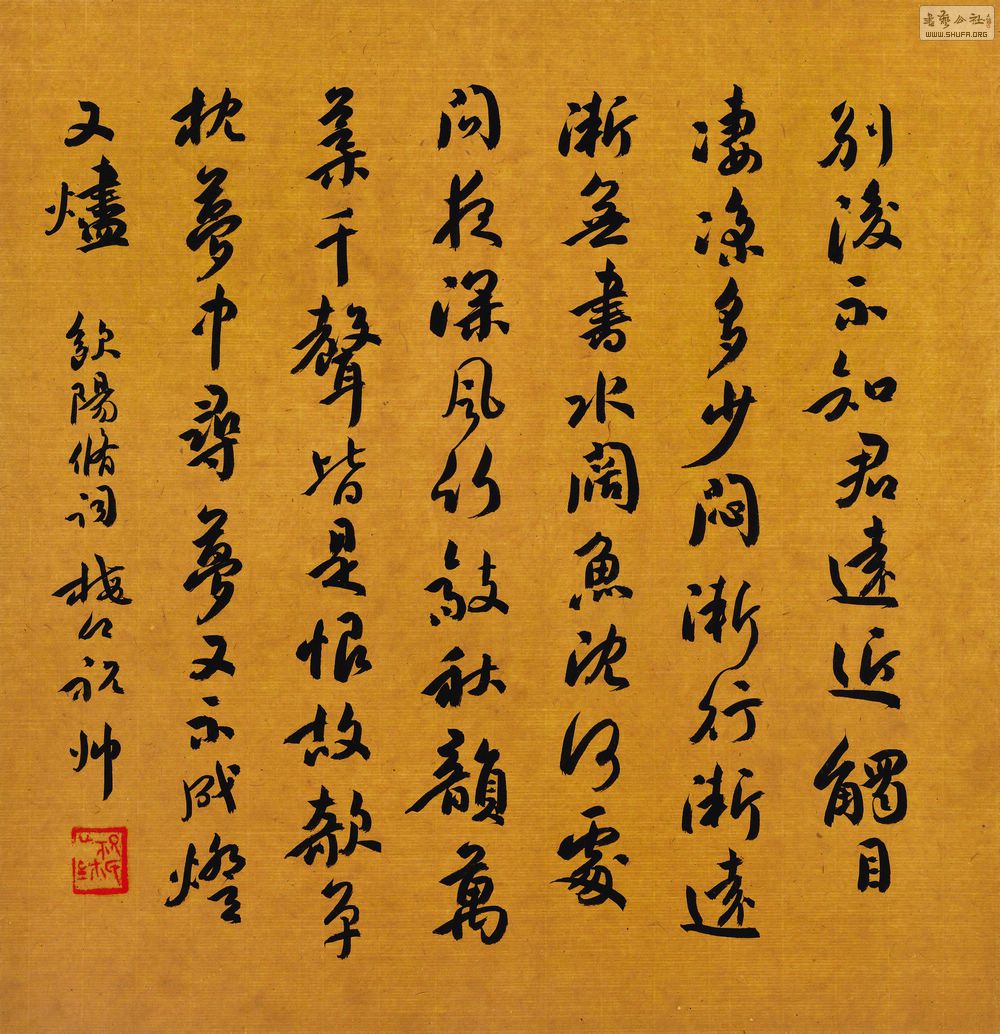 別後不知君遠近觸目
凄涼多少悶漸行漸遠
漸無書水闊魚沈何處
問夜深風竹敲秋韻萬
葉千聲皆是恨故欹單
枕夢中尋夢又不成燈
又燼 歐陽脩詞 祝帅
书艺公社
WWW.SHUFA.ORG